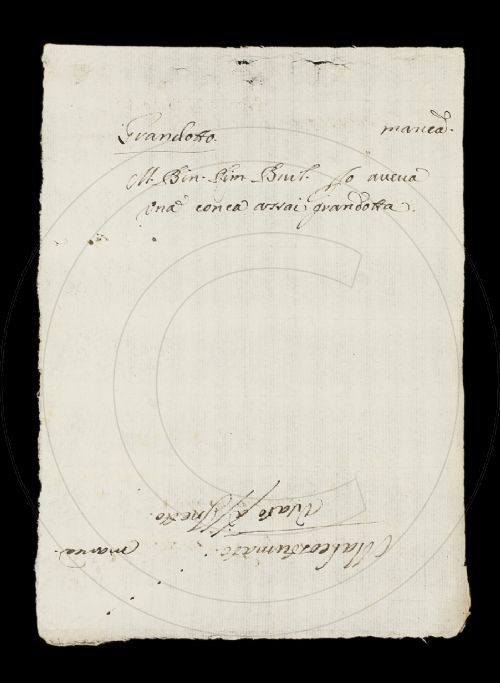 Grandotto. manca.
M. Bin. Rim. Burl. Io aveva
una conca assai grandotta.
Malcostumato. manca.
Usato